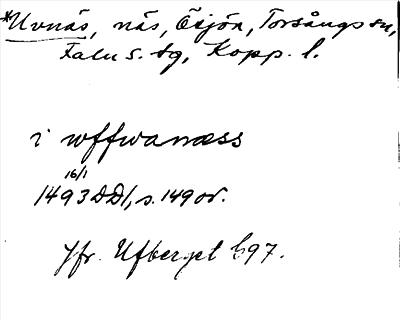 *Uvnäs, näs, Ösjön, Torsångs sn,
Falu s. tg, Kopp. l.
i wffwanæss
16/1
1493 DD1, s. 149 or.
Jfr. Ufberget G97.